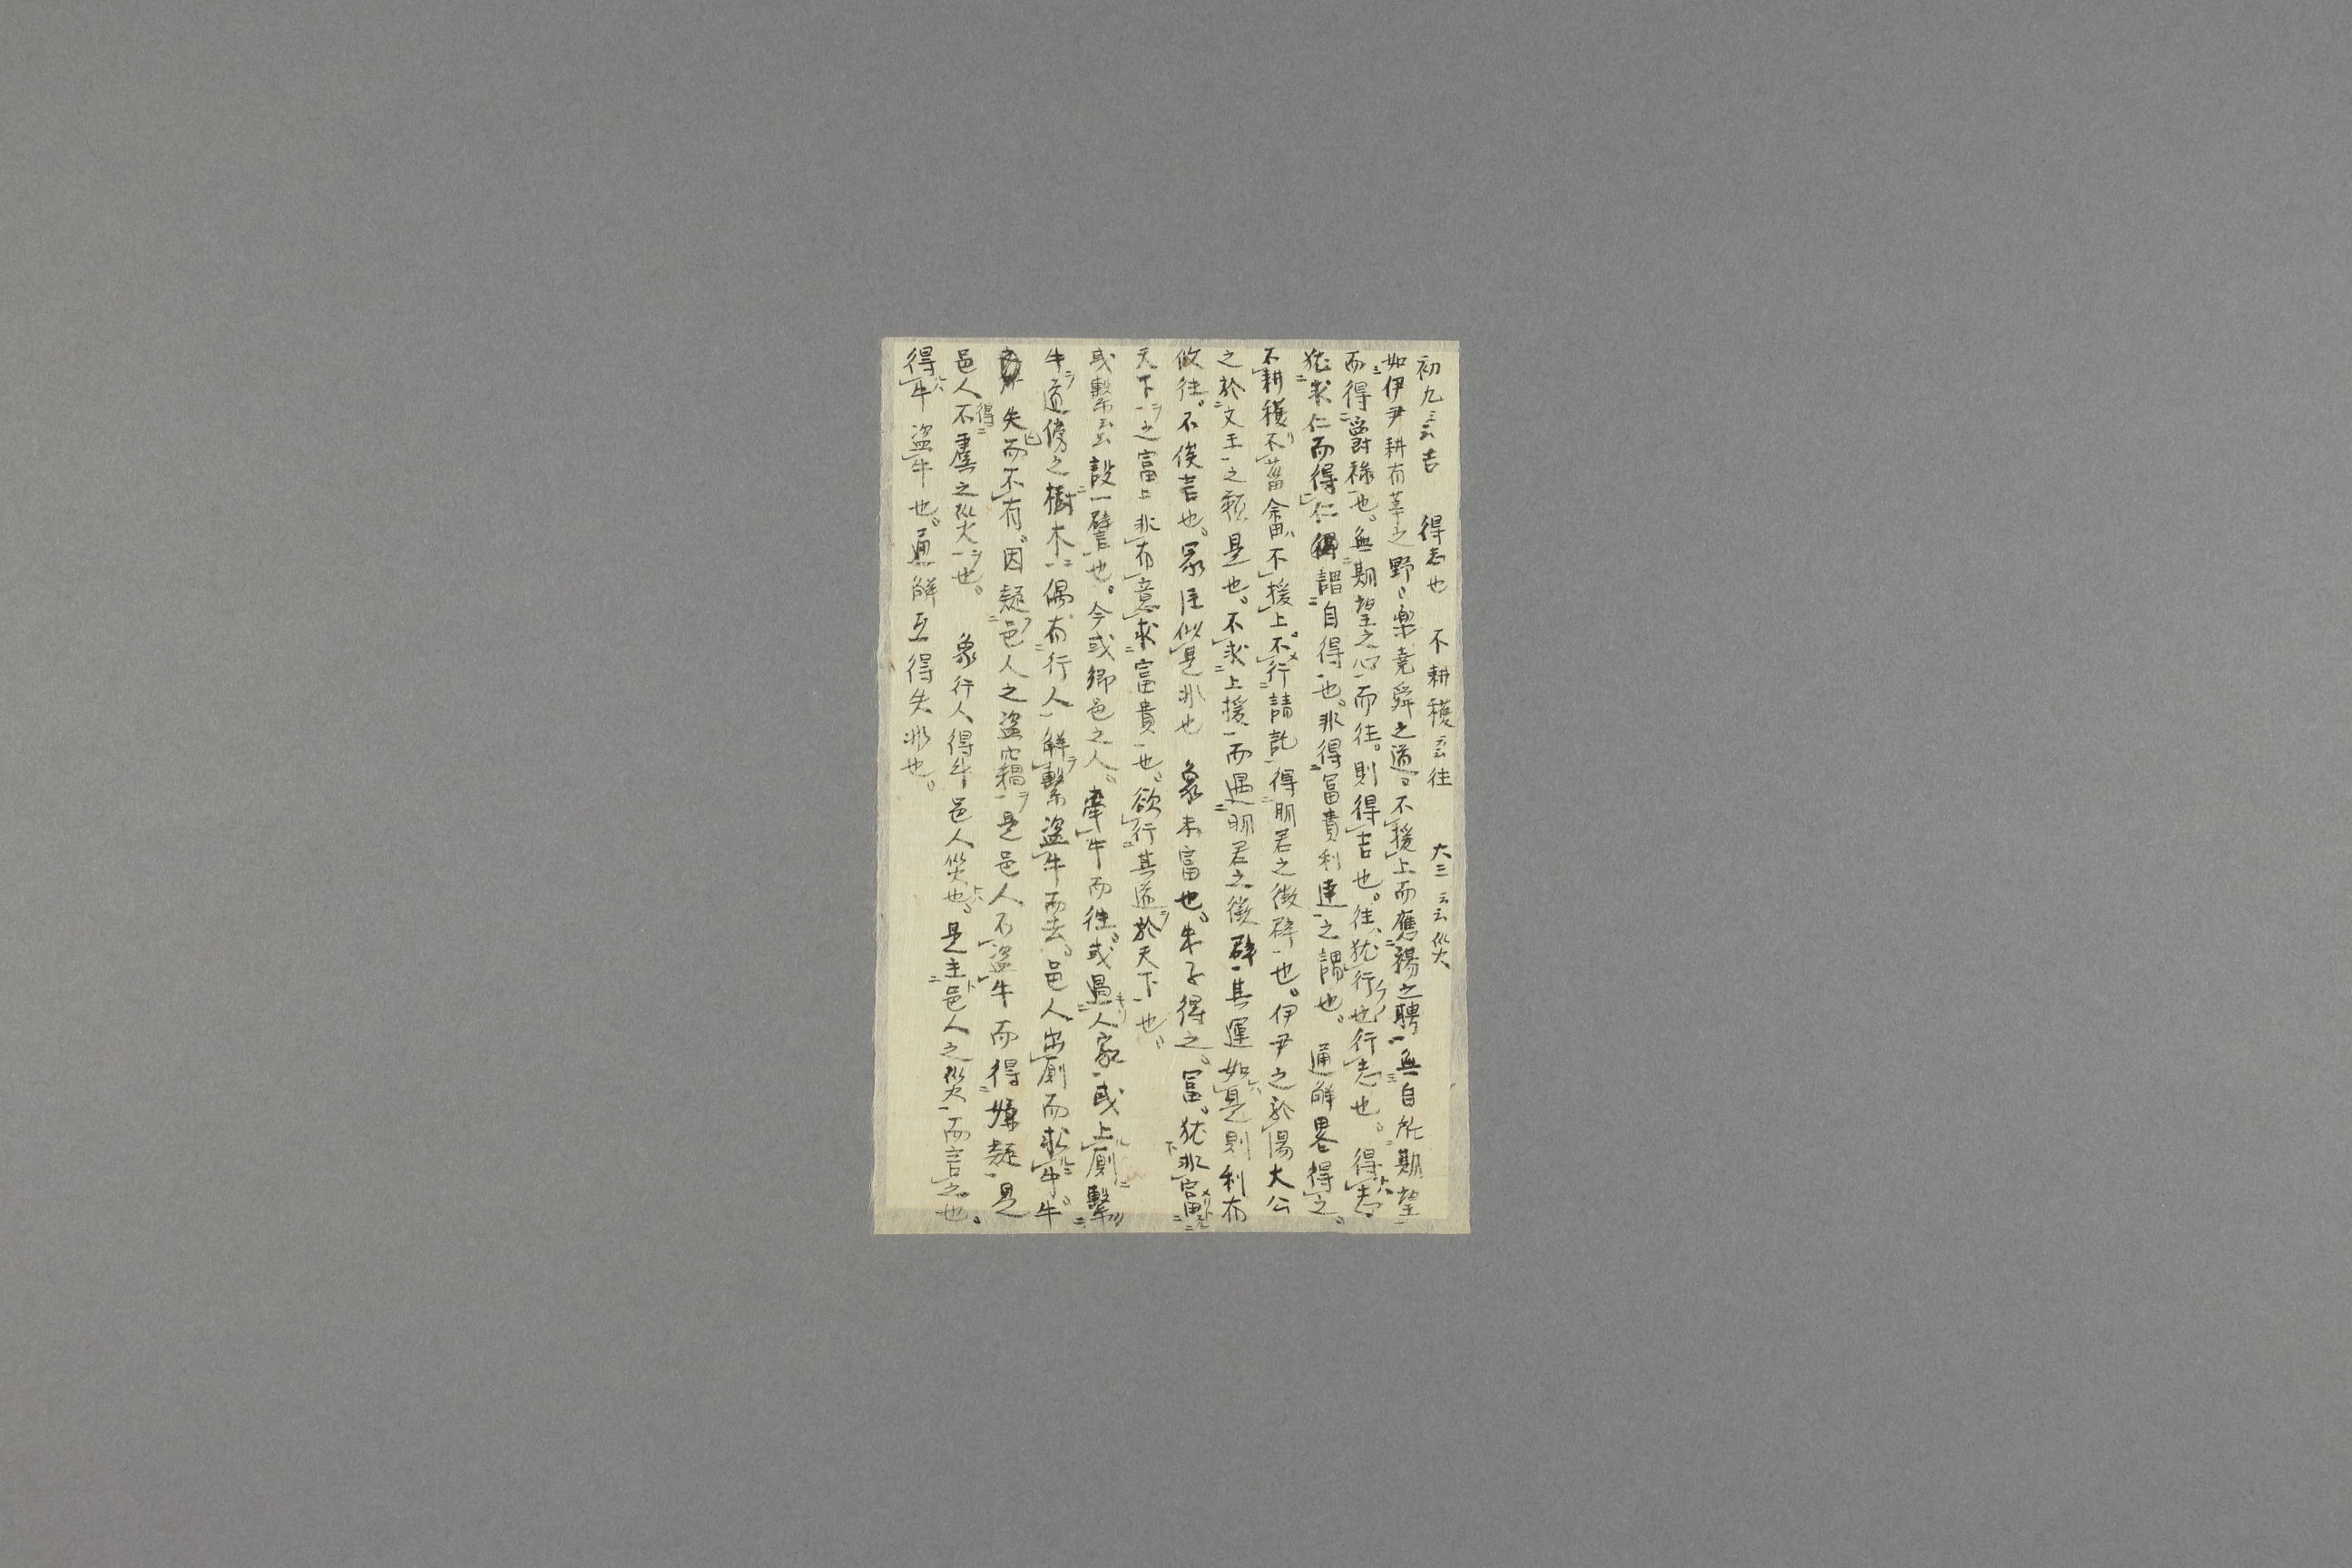 初九云云吉　得志也　不耕穫云云往　六三云云災
如伊尹耕有莘之野〻樂堯舜之道。不援上而應湯之聘無自所期望
而得爵祿也。無期望之心而往。則得吉也。往ハ猶行也行志也。得志ハ
猶求仁而得仁謂自得也。非得富貴利達之謂也。通解畧得之。
不耕穫不菑畬ハ不援上。不行請託得明君之徴辟也。伊尹之於湯大公
之於文王之類是也。不求上援而遇明君之徴辟其運如是則利有
攸往。不俟言也。彖注似是非也　象未富也。朱子得之。富。猶非富
天下之富上非有意求富貴也。欲行其道於天下也。
或繫云云設一譬也。今或鄉邑之人。牽牛而往。或過人家或上厠繫
牛道傍之樹木偶有行人解繫盜牛而去。邑人出厠而求牛。牛
失而不有。因疑邑人之盜竊是邑人不盜牛而得嫌疑是
邑人不得虞之災也。　象行人得牛邑人災也。是主邑人之災而言之也。
得牛盜牛也。通解互得失非也。